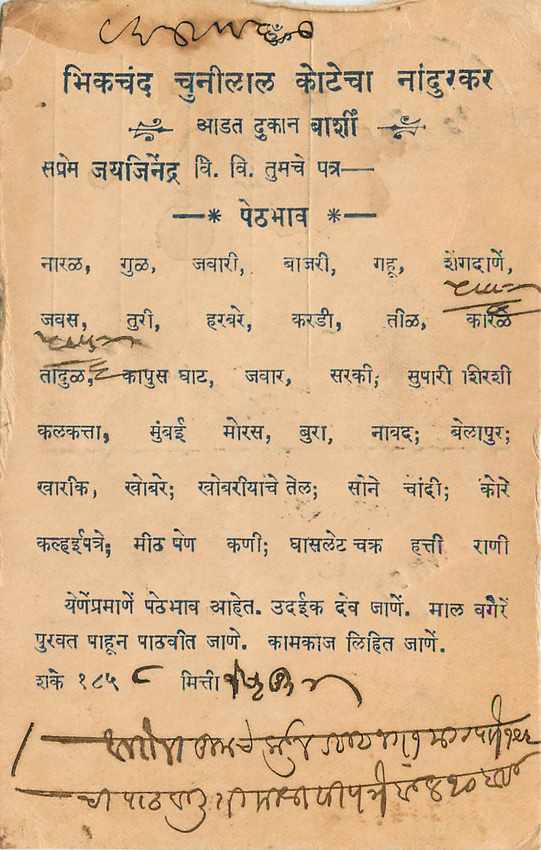 भिकचंद चुनीलाल कोटेचा नांदुरकर
आडत दुकान बार्शी
सप्रेम जयजिनेंद्र वि. वि. तुमचे पत्र—
—* पेठभाव *—
नारळ, गुळ, जवारी, बाजरी, गहू, शेंगदाणें,
जवस, तुरी, हरबरे, करडी, तीळ, कारळे
तांदुळ, कापुस घाट, जवार, सरकी; सुपारी शिरशी
कलकत्ता, मुंबई मोरस, बुरा, नाबद; बेलापुर;
खारीक, खोबरे; खोबरीयाचे तेल; सोने चांदी; कोरें
कल्हईपत्रे; मीठ पेण कणी; घासलेट चक्र हत्ती राणी
येणेंप्रमाणें पेठभाव आहेत. उदईक देव जाणें. माल वगैरें
पुरवत पाहून पाठवीत जाणे. कामकाज लिहित जाणें.
शके १८५८ मित्ती